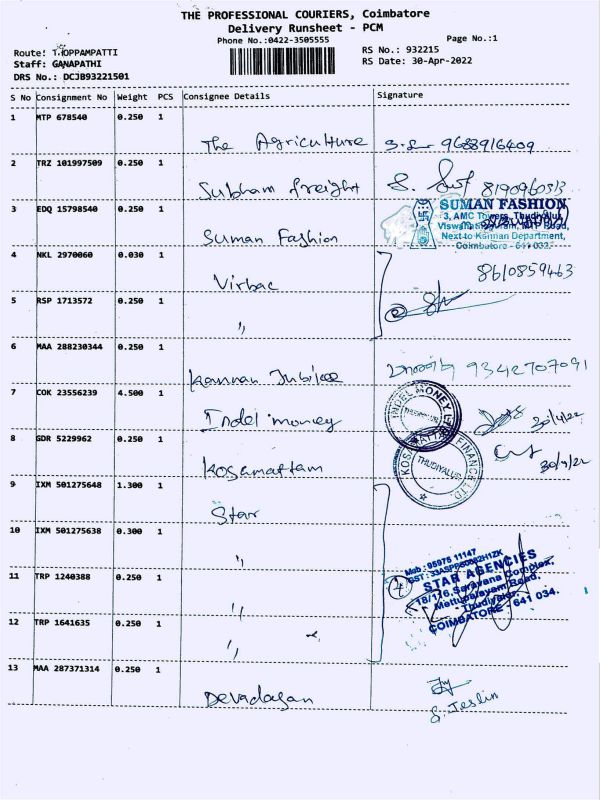 THE PROFESSIONAL COURIERS, Coimbatore
Delivery Runsheet - PCM
Phone No.:0422-3505555
Page No.:1
Route: T.HOPPAMPATTI
RS No.: 932215
Staff: GANAPATHI
RS Date: 30-Apr-2022
DRS No.: DCJB93221501
S No Consignment No Weight PCS Consignee Details Signature
1 MTP 678540 0.250 1
The Agriculture 9688916409
2 TRZ 101997509 0.250 1
Subham freight S. 8190960513
3 EDQ 15798540 0.250 1
Suman Fashion
SUMAN FASHION
3, AMC Towers, Thudiyalur,
Viswanathapuram, MTP Road,
Next to Kannan Department,
Coimbatore - 641 032.
4 NKL 2970060 0.030 1
Virbac 8610859463
5 RSP 1713572 0.250 1
" 2
6 MAA 288230344 0.250 1
Kannan Jubilee 9342707091
7 COK 23556239 4.500 1
Indel money 30/4/22
INDEL MONEY
THUDIYALUR
8 GDR 5229962 0.250 1
Kosamattam 30/4/22
KOSAMATTAM FINANCE LTD.
THUDIYALUR
9 IXM 501275648 1.300 1
Star
10 IXM 501275638 0.300 1
"
11 TRP 1240388 0.250 1
"
12 TRP 1641635 0.250 1
"
4
Mob : 95975 11147
STAR AGENCIES
18/116, Saravana Complex,
Mettupalayam Road,
Thudiyalur,
COIMBATORE - 641 034.
13 MAA 287371314 0.250 1
Devadasan
S. Jeslin